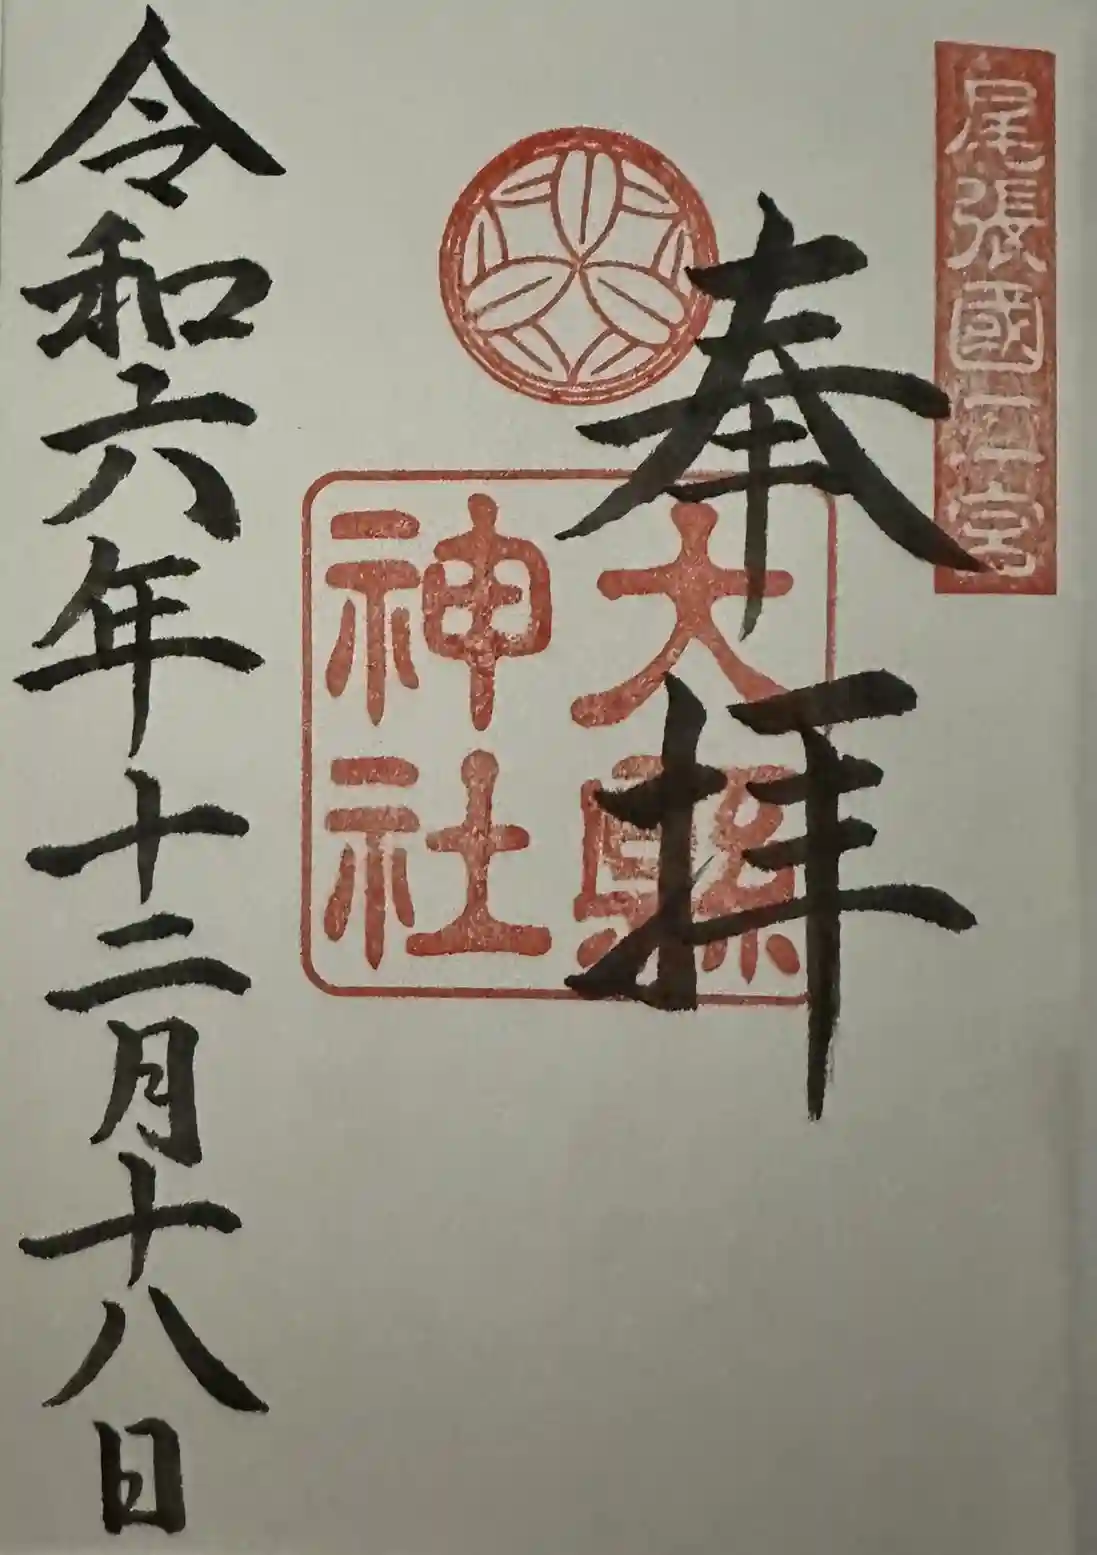 尾張國二宮
奉拝
大縣
神社
令和六年十二月十八日